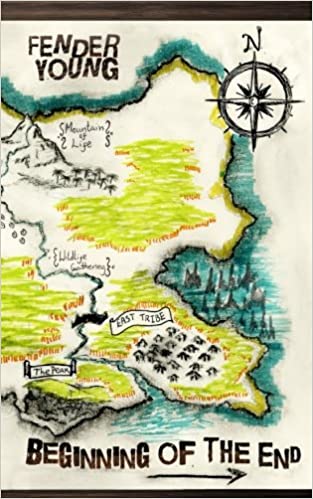 FENDER
YOUNG
N
Mountain
of
Life
Wildlife
Gathering
EAST TRIBE
The PEAK
BEGINNING OF THE END